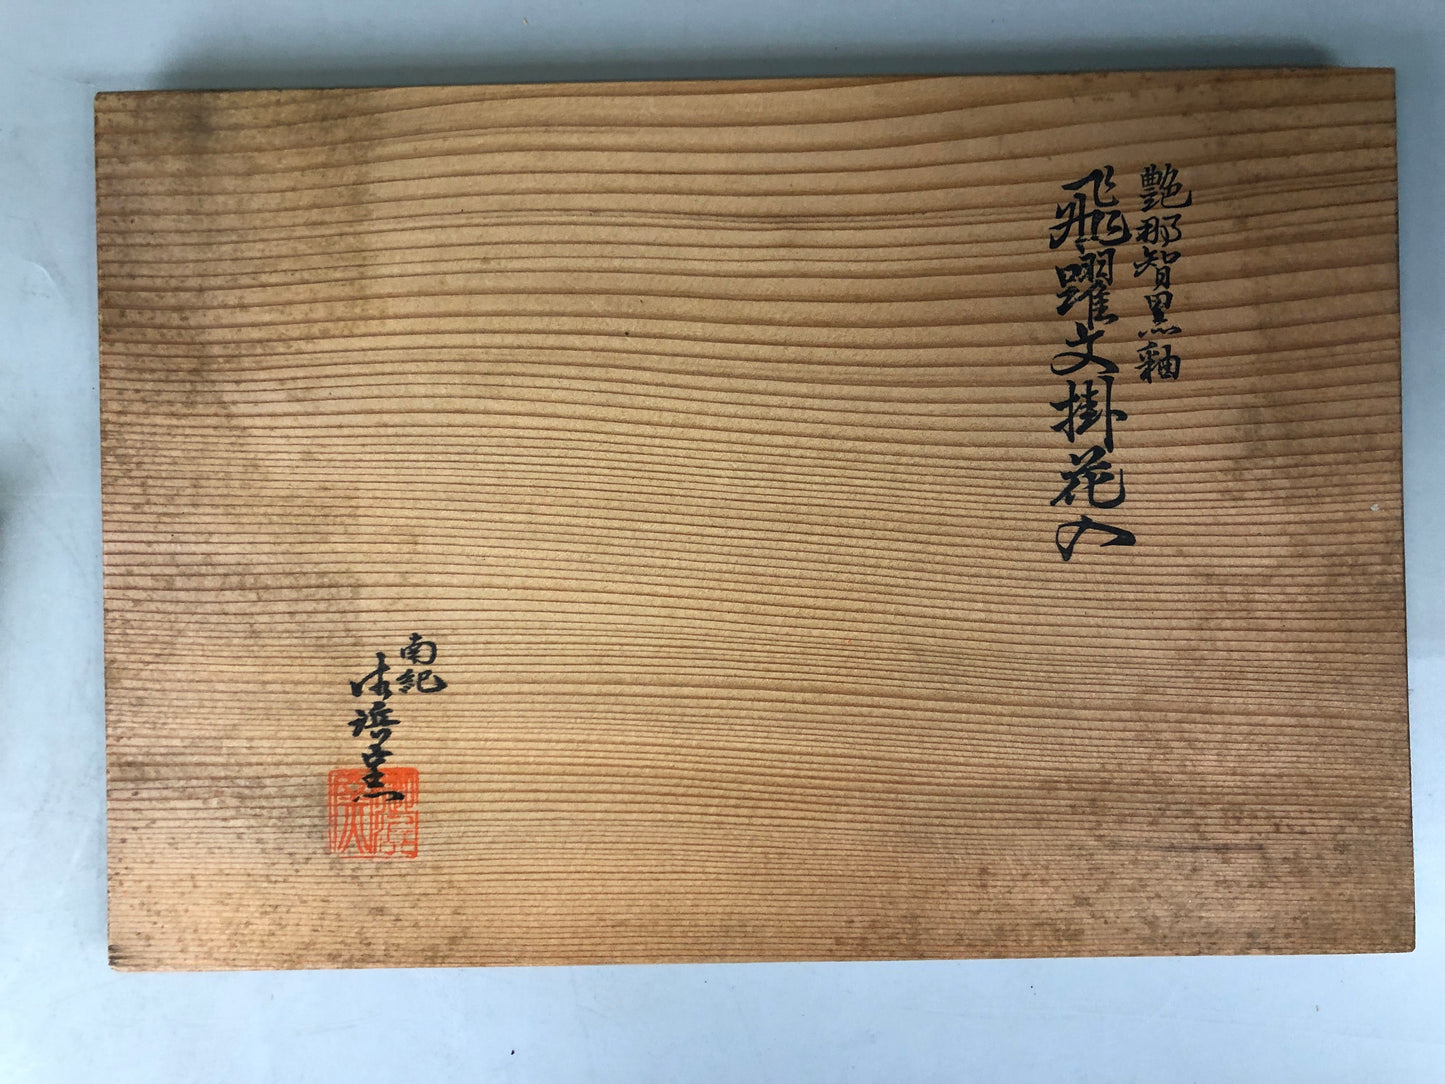 艶那智黒釉
飛躍文掛花入
南紀
窯